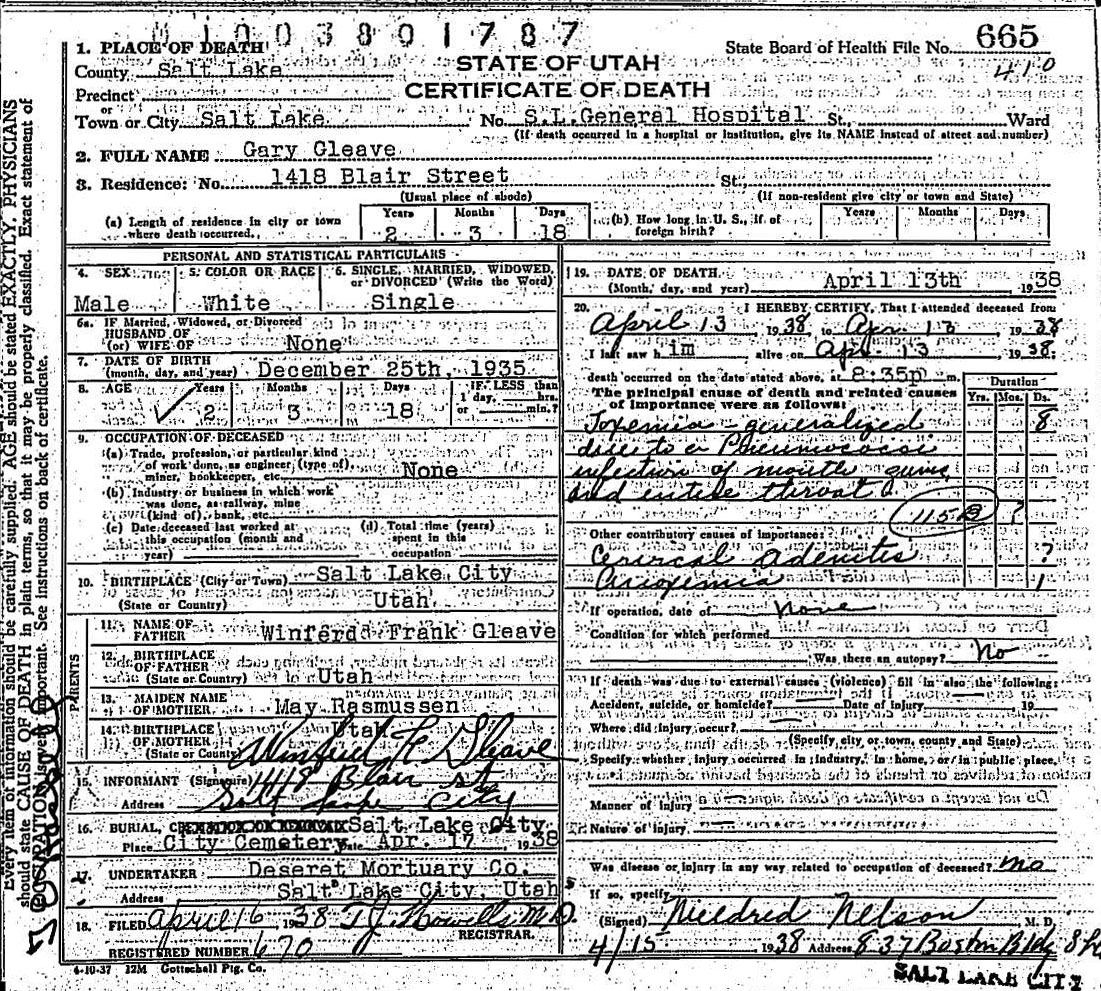 01003801787
State Board of Health File No. 665
410
STATE OF UTAH
CERTIFICATE OF DEATH
1. PLACE OF DEATH
County Salt Lake
Precinct
or
Town or City Salt Lake No. S.L.General Hospital St., Ward
(If death occurred in a hospital or institution, give its NAME instead of street and number)
2. FULL NAME Gary Gleave
3. Residence: No. 1418 Blair Street St.,
(Usual place of abode) (If non-resident give city or town and State)
(a) Length of residence in city or town where death occurred. Years 2 Months 3 Days 18
(b) How long in U. S., if of foreign birth? Years Months Days
PERSONAL AND STATISTICAL PARTICULARS
4. SEX Male
5. COLOR OR RACE White
6. SINGLE, MARRIED, WIDOWED, or DIVORCED (Write the Word) Single
6a. IF Married, Widowed, or Divorced
HUSBAND OF
(or) WIFE OF None
7. DATE OF BIRTH
(month, day, and year) December 25th, 1935
8. AGE Years 2 Months 3 Days 18 IF LESS than 1 day, hrs. or min.?
9. OCCUPATION OF DECEASED
(a) Trade, profession, or particular kind
of work done, as engineer, (type of),
miner, bookkeeper, etc. None
(b) Industry or business in which work
was done, as railway, mine
(kind of), bank, etc.
(c) Date deceased last worked at
this occupation (month and
year)
(d) Total time (years)
spent in this
occupation
10. BIRTHPLACE (City or Town) Salt Lake City
(State or Country) Utah
PARENTS
11. NAME OF FATHER Winferd Frank Gleave
12. BIRTHPLACE OF FATHER
(State or Country) Utah
13. MAIDEN NAME OF MOTHER May Rasmussen
14. BIRTHPLACE OF MOTHER
(State or Country) Utah
15. INFORMANT (Signature) Winferd F Gleave
Address 1418 Blair st
Salt Lake City
16. BURIAL, Salt Lake City
Place City Cemetery Date Apr. 17 1938
17. UNDERTAKER Deseret Mortuary Co.
Address Salt Lake City, Utah
18. FILED April 16 1938 T.J. Howells M.D.
REGISTRAR.
REGISTERED NUMBER 670
4-10-37 12M Gottschall Ptg. Co.
19. DATE OF DEATH
(Month, day, and year) April 13th 1938
20. I HEREBY CERTIFY, That I attended deceased from
April 13 1938 to Apr 13 1938
I last saw him alive on Apr. 13 1938:
death occurred on the date stated above, at 8:35p m.
The principal cause of death and related causes
of importance were as follows:
Duration
Yrs. Mos. Ds.
Toxemia - generalized 8
due to a Pneumococci
infection of mouth gums
and entire throat.
115B ?
Other contributory causes of importance:
Cervical Adenitis ?
1
If operation, date of None
Condition for which performed
Was there an autopsy? No
If death was due to external causes (violence) fill in also the following:
Accident, suicide, or homicide? Date of injury 19
Where did injury occur?
(Specify city or town, county and State)
Specify whether injury occurred in industry, in home, or in public place.
Manner of injury
Nature of injury
Was disease or injury in any way related to occupation of deceased? no
If so, specify
(Signed) Mildred Nelson M. D.
4/15 1938 Address 837 Boston Bldg
SALT LAKE CITY
Every item of information should be carefully supplied. AGE should be stated EXACTLY. PHYSICIANS
should state CAUSE OF DEATH in plain terms, so that it may be properly classified. Exact statement of
OCCUPATION is very important. See instructions on back of certificate.